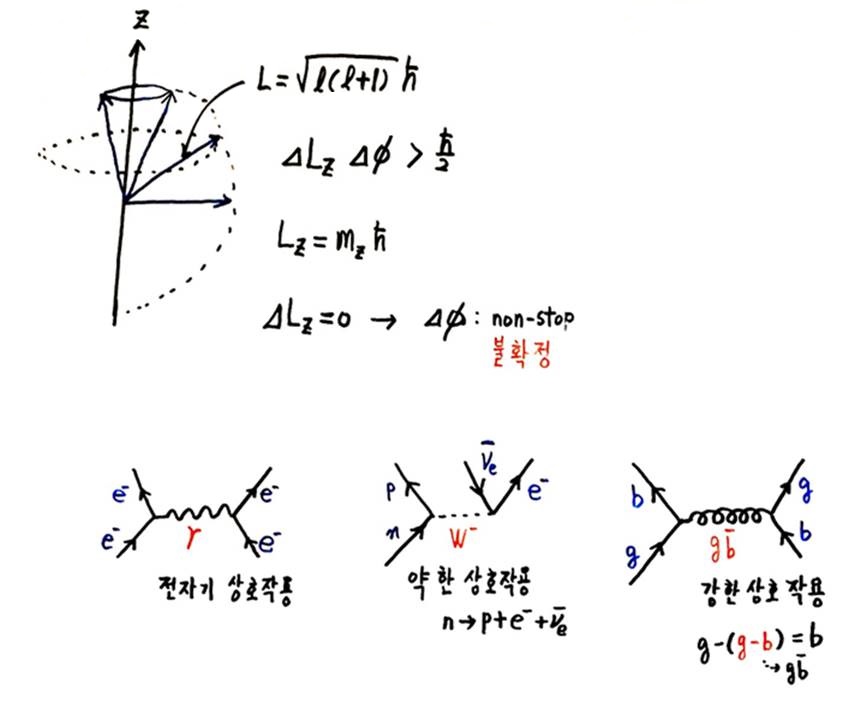 z
L = √l(l+1) ħ
ΔLz Δφ > ħ/2
Lz = mz ħ
ΔLz = 0 → Δφ : non-stop
불확정
e⁻ e⁻
e⁻ γ e⁻
전자기 상호작용
p ν̄e e⁻
n W⁻
약한 상호작용
n → p + e⁻ + ν̄e
b g
g gb̄ b
강한 상호 작용
g - (g-b) = b
→ gb̄